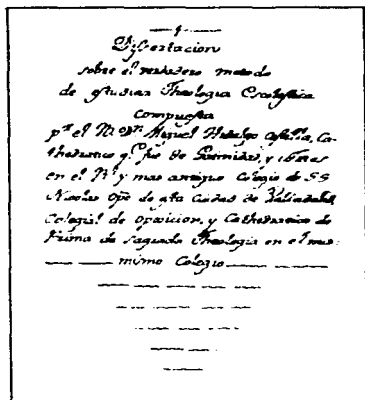 Dissertacion
sobre el verdadero metodo
de estudiar Theologia Escolastica
compuesta
pr. el Br. Dn. Miguel Hidalgo Costilla, Ca-
thedratico q.e fue de Latinidad, y Artes
en el Rl. y mas antiguo Colegio de SS.
Nicolas Opo. de esta Ciudad de Valladolid,
Colegial de oposicion, y Cathedratico de
Prima de Sagrada Theologia en el mis-
mimo Colegio